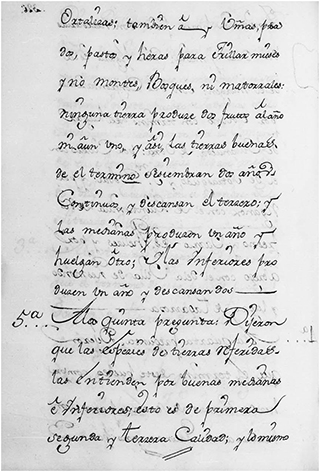 Ortalizas: tambien á y Viñas, pra
dos, pastos y heras para trillar mieses
y no montes, Bosques, ni matorrales:
ninguna tierra produce dos frutos al año
ni aun uno, y asi, las tierras buenas
de el termino se siembran dos años
Continuos, y descansan el tercero; y
Las medianas producen un año y
huelgan otro; y las Inferiores pro
ducen un año y descansan dos
5.ª A la quinta pregunta: Dijeron
que las especies de tierras referidas
las entienden por buenas medianas
è Inferiores; esto es de primera
segunda y tercera Calidad; y lo mismo